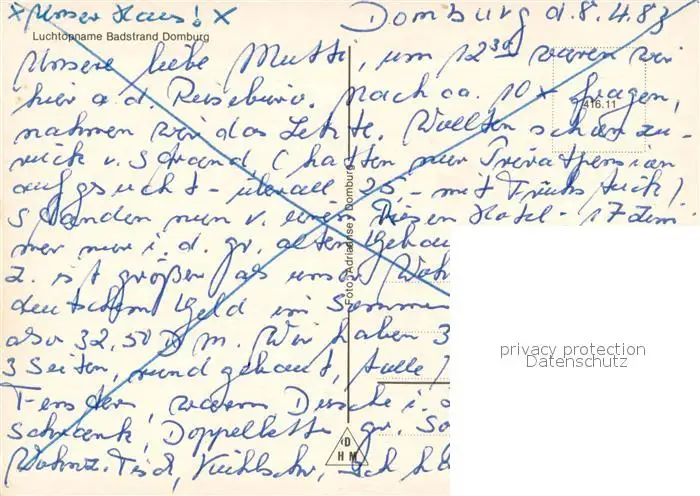 x Unser Haus! x Domburg d. 8.4.83
Luchtopname Badstrand Domburg
Unsere liebe Mutti, um 12 30 waren wir
hier a. d. Reisebüro. Nach ca. 10 x fragen,
416.11
nahmen wir das Letzte. Wollten schon zu-
rück v. Strand (hatten nur Privatpension
aufgesucht - überall 25,- mit Frühstück)
standen nun v. einem Hotel - 17 Zim
mer nur i. d. gr. alten Gebäu
Z. ist größer als unser Wohn
deutschem Geld im Sommer
also 32,50 DM. Wir haben 3
3 Seiten, rund gebaut, tolle
Fenster, warm Dusche i.
Schrank, Doppelbett gr. So
Wohnz. Tisch, Kühlschr., ich
Foto: Adriaanse, Domburg
D
H M
privacy protection
Datenschutz